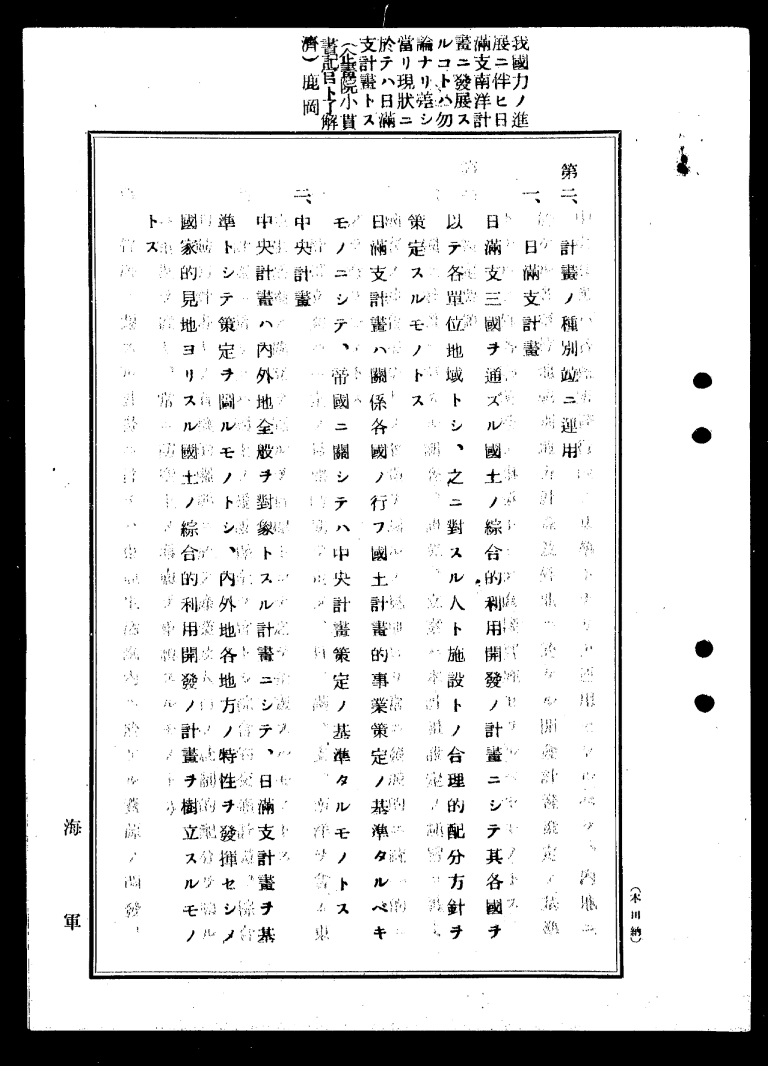 我國力ノ進
展ニ伴ヒ日
滿支南洋計
畫ニ發展ス
ルコトハ勿
論ナリ蓋シ
當リ現狀ニ
於テハ日滿
支計畫トス
(企畫院小貫
書記官ト了解
濟)鹿岡
第二、計畫ノ種別竝ニ運用
一、日滿支計畫
日滿支三國ヲ通ズル國土ノ綜合的利用開發ノ計畫ニシテ其各國ヲ
以テ各單位地域トシ、之ニ對スル人ト施設トノ合理的配分方針ヲ
策定スルモノトス
日滿支計畫ハ關係各國ノ行フ國土計畫的事業策定ノ基準タルベキ
モノニシテ、帝國ニ關シテハ中央計畫策定ノ基準タルモノトス
二、中央計畫
中央計畫ハ內外地全般ヲ對象トスル計畫ニシテ、日滿支計畫ヲ基
準トシテ策定ヲ圖ルモノトシ、內外地各地方ノ特性ヲ發揮セシメ
國家的見地ヨリスル國土ノ綜合的利用開發ノ計畫ヲ樹立スルモノ
トス
海軍
(本田納)